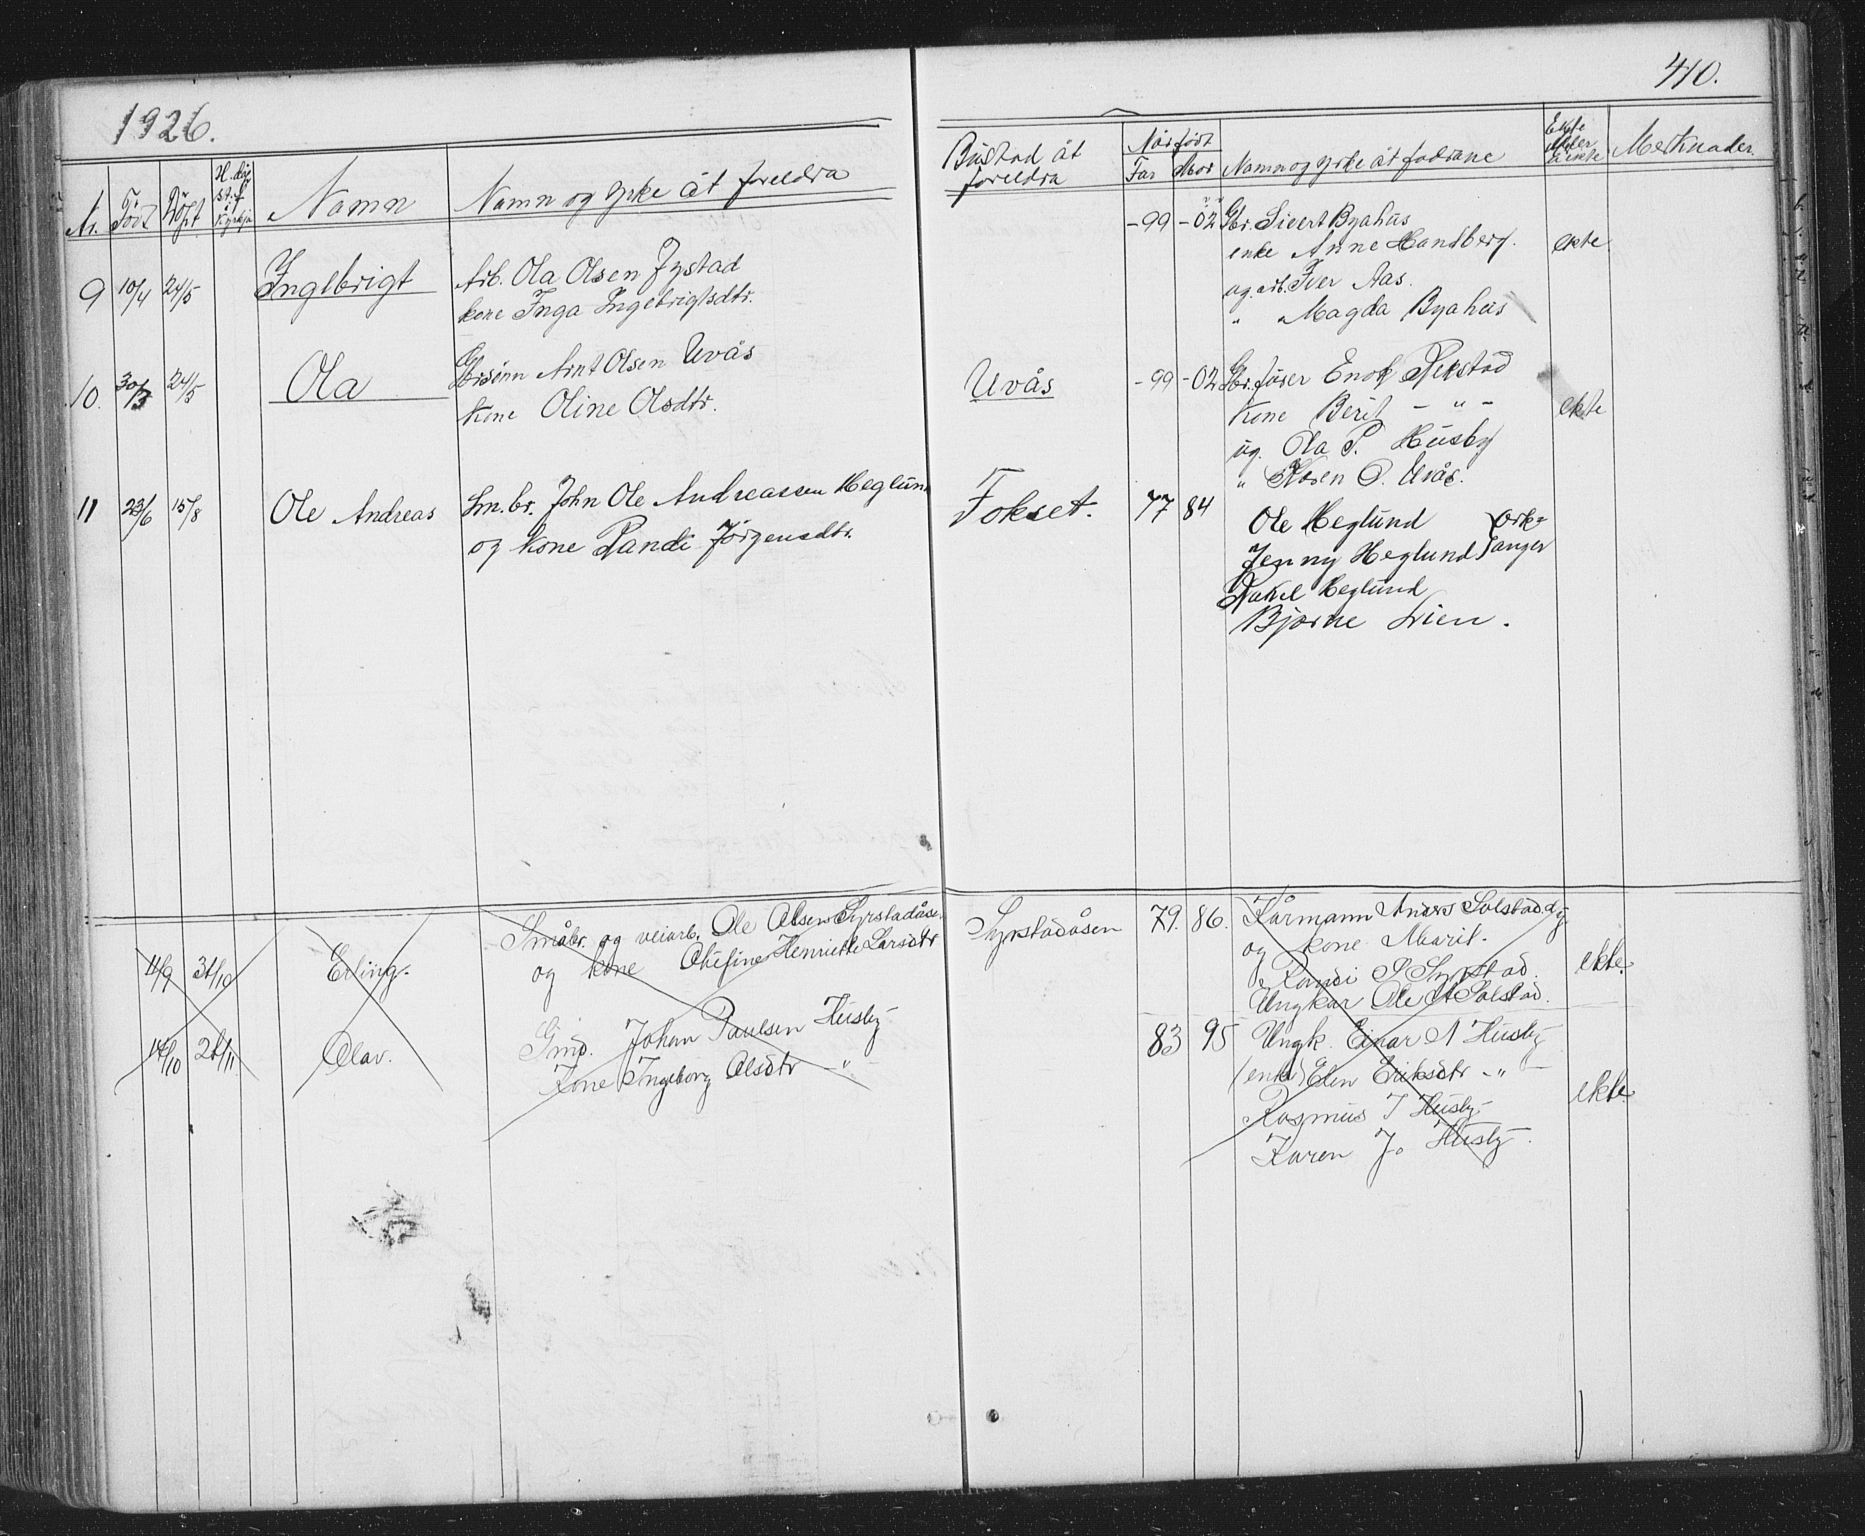 1926.
410.
Nr. Född Döpt H. dåp st. f. i Kyrkja Namn Namn og yrke åt foreldra Bustad åt foreldra Når født Far Mor Namn og yrke åt fadrane Ekte eller uekte Merknader
9 10/4 24/5 Ingebrigt Arb. Ola Olsen Jystad -99 -02 Gbr. Sivert Byahus
kone Inga Ingebrigtsdtr. enke Anne Handberg. ekte
ug. arb. Iver Aas.
" " Magda Byahus
10. 30/3 24/5 Ola Gbrsönn Arnt Olsen Uvås Uvås -99 -02 Gbr. fuser Enok Rekstad
kone Oline Olsdtr. Kone Berit - " - ekte
ug. Ola P. Husby
" Karen O. Uvås.
11 23/6 15/8 Ole Andreas Sm.br. John Ole Andreassen Heglund Fokset. 77 84 Ole Heglund } Ork-
og kone Randi Jörgensdtr. Jenny Heglund } anger
Rakel Heglund
Bjarne Lien.
11/9 31/10 Erling. Småbr. og veiarb. Ole Olsen Syrstadåsen Syrstadåsen 79. 86. Kårmann Anders Solstad
og kone Olefine Henriette Larsdtr og kone Marit. ekte.
Randi P Syrstad.
Ungkar Ole A Solstad.
14/10 21/11 Olav. Gmd. Johan Paulsen Husby 83 95 Ungk. Einar A Husby
Kone Ingeborg Olsdtr - " - (enke) Elen Eriksdtr - " - ekte.
Rasmus J Husby
Karen Jo Husby.